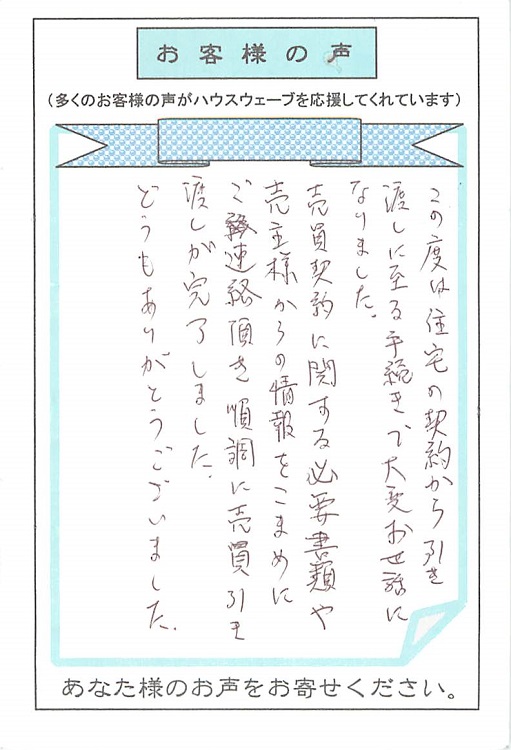 お客様の声
(多くのお客様の声がハウスウェーブを応援してくれています)
この度は住宅の契約から引き
渡しに至る手続きで大変お世話に
なりました。
売買契約に関する必要書類や
売主様からの情報をこまめに
ご連絡頂き順調に売買引き
渡しが完了しました。
どうもありがとうございました。
あなた様のお声をお寄せください。